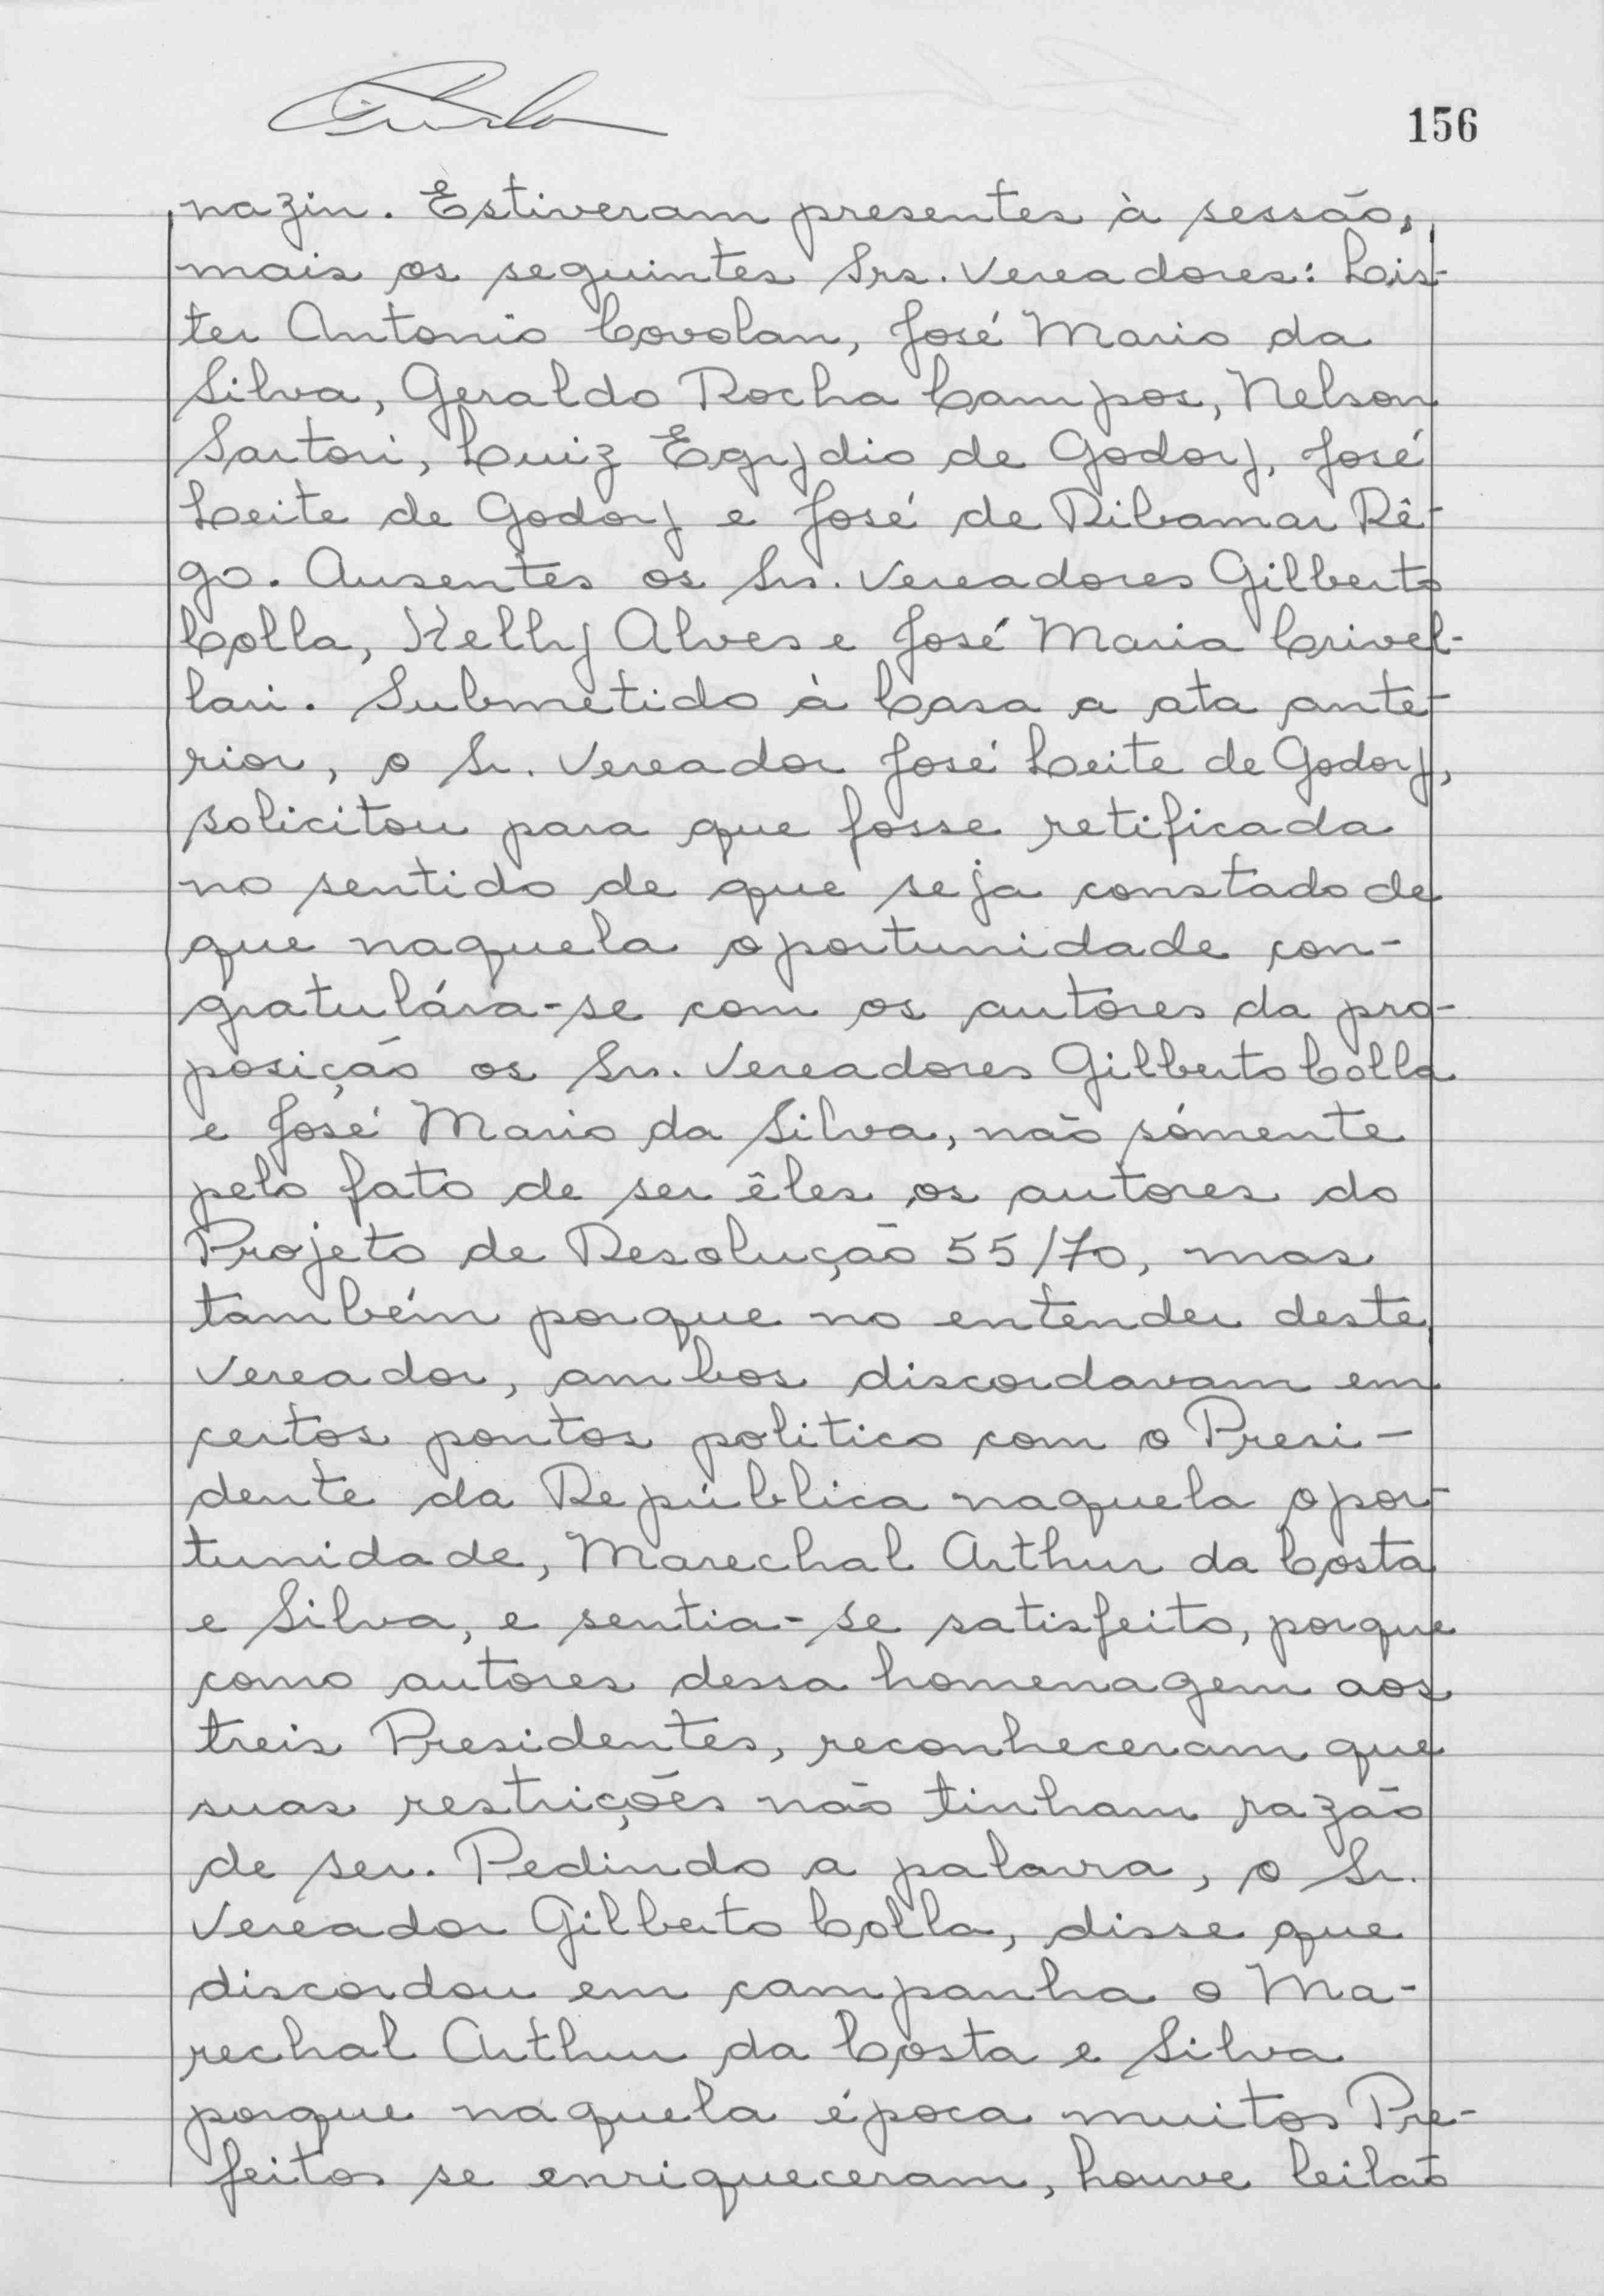 156
nazin. Estiveram presentes à sessão,
mais os seguintes Srs. Vereadores: Lis-
ter Antonio Covolan, José Mario da
Silva, Geraldo Rocha Campos, Nelson
Sartori, Luiz Egydio de Godoy, José
Leite de Godoy e José de Ribamar Rê-
go. Ausentes os Srs. Vereadores Gilberto
Colla, Kelly Alves e José Maria Crivel-
lari. Submetido à Casa a ata ante-
rior, o Sr. Vereador José Leite de Godoy,
solicitou para que fosse retificada
no sentido de que seja constado de
que naquela oportunidade con-
gratulára-se com os autores da pro-
posição os Srs. Vereadores Gilberto Colla
e José Mario da Silva, não sómente
pelo fato de ser êles os autores do
Projeto de Resolução 55/70, mas
também porque no entender deste
Vereador, ambos discordavam em
certos pontos politico com o Presi-
dente da República naquela opor-
tunidade, Marechal Arthur da Costa
e Silva, e sentia-se satisfeito, porque
como autores dessa homenagem aos
treis Presidentes, reconheceram que
suas restrições não tinham razão
de ser. Pedindo a palavra, o Sr.
Vereador Gilberto Colla, disse que
discordou em campanha o Ma-
rechal Arthur da Costa e Silva
porque naquela época muitos Pre-
feitos se enriqueceram, houve leilão